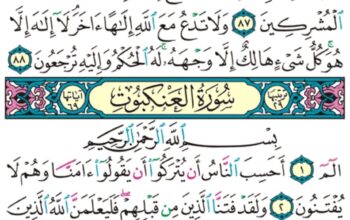 ٱلْمُشْرِكِينَ ٨٧ وَلَا تَدْعُ مَعَ ٱللَّهِ إِلَٰهًا ءَاخَرَ لَآ إِلَٰهَ إِلَّا
هُوَ كُلُّ شَىْءٍ هَالِكٌ إِلَّا وَجْهَهُۥ لَهُ ٱلْحُكْمُ وَإِلَيْهِ تُرْجَعُونَ ٨٨
ترتيبها ٢٩ سُورَةُ الْعَنْكَبُوتِ آياتها ٦٩
بِسْمِ ٱللَّهِ ٱلرَّحْمَٰنِ ٱلرَّحِيمِ
الٓمٓ ١ أَحَسِبَ ٱلنَّاسُ أَن يُتْرَكُوٓا۟ أَن يَقُولُوٓا۟ ءَامَنَّا وَهُمْ لَا
يُفْتَنُونَ ٢ وَلَقَدْ فَتَنَّا ٱلَّذِينَ مِن قَبْلِهِمْ فَلَيَعْلَمَنَّ ٱللَّهُ ٱلَّذِينَ